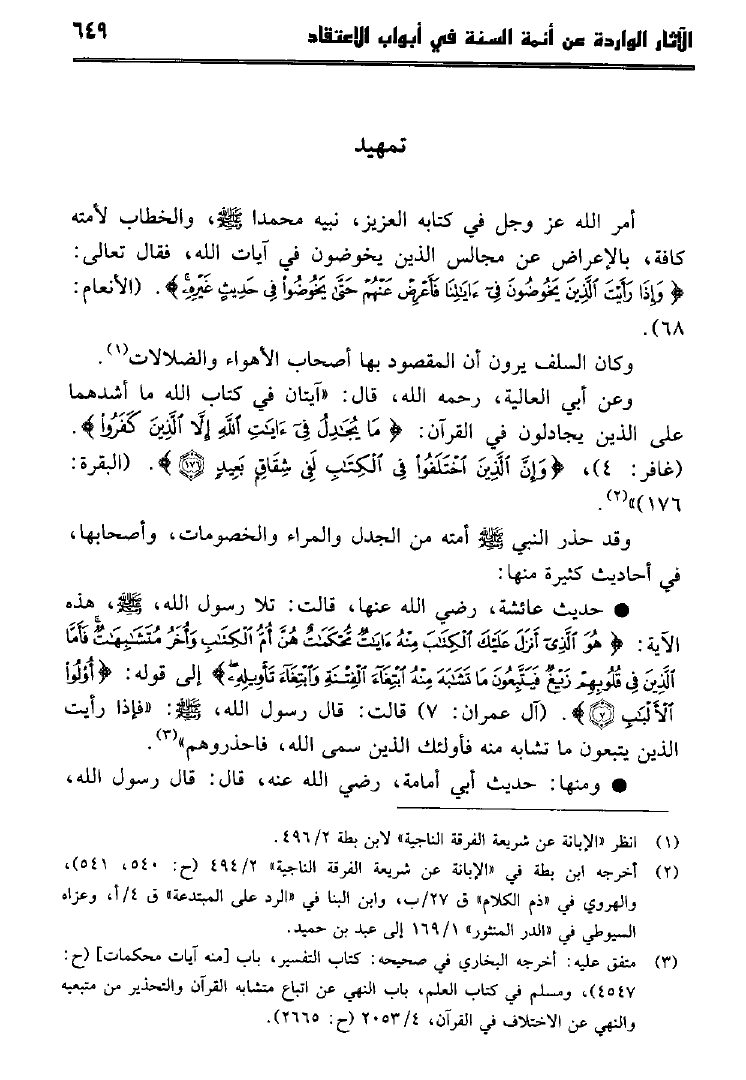 الآثار الواردة عن أئمة السنة في أبواب الاعتقاد ٦٤٩
تمهيد
أمر الله عز وجل في كتابه العزيز، نبيه محمدا ﷺ، والخطاب لأمته
كافة، بالإعراض عن مجالس الذين يخوضون في آيات الله، فقال تعالى:
﴿ وَإِذَا رَأَيْتَ الَّذِينَ يَخُوضُونَ فِي ءَايَٰتِنَا فَأَعْرِضْ عَنْهُمْ حَتَّىٰ يَخُوضُوا فِي حَدِيثٍ غَيْرِهِۦ ﴾. (الأنعام:
٦٨).
وكان السلف يرون أن المقصود بها أصحاب الأهواء والضلالات(١).
وعن أبي العالية، رحمه الله، قال: «آيتان في كتاب الله ما أشدهما
على الذين يجادلون في القرآن: ﴿ مَا يُجَٰدِلُ فِي ءَايَٰتِ اللَّهِ إِلَّا الَّذِينَ كَفَرُوا ﴾.
(غافر: ٤)، ﴿ وَإِنَّ الَّذِينَ اخْتَلَفُوا فِي الْكِتَٰبِ لَفِي شِقَاقٍ بَعِيدٍ ۝١٧٦ ﴾. (البقرة:
١٧٦)»(٢).
وقد حذر النبي ﷺ أمته من الجدل والمراء والخصومات، وأصحابها،
في أحاديث كثيرة منها:
● حديث عائشة، رضي الله عنها، قالت: تلا رسول الله، ﷺ، هذه
الآية: ﴿ هُوَ الَّذِي أَنزَلَ عَلَيْكَ الْكِتَٰبَ مِنْهُ ءَايَٰتٌ مُّحْكَمَٰتٌ هُنَّ أُمُّ الْكِتَٰبِ وَأُخَرُ مُتَشَٰبِهَٰتٌ فَأَمَّا
الَّذِينَ فِي قُلُوبِهِمْ زَيْغٌ فَيَتَّبِعُونَ مَا تَشَٰبَهَ مِنْهُ ابْتِغَاءَ الْفِتْنَةِ وَابْتِغَاءَ تَأْوِيلِهِۦ ﴾ إلى قوله: ﴿ أُوْلُوا
الْأَلْبَٰبِ ۝٧ ﴾. (آل عمران: ٧) قالت: قال رسول الله، ﷺ: «فإذا رأيت
الذين يتبعون ما تشابه منه فأولئك الذين سمى الله، فاحذروهم»(٣).
● ومنها: حديث أبي أمامة، رضي الله عنه، قال: قال رسول الله،
(١) انظر «الإبانة عن شريعة الفرقة الناجية» لابن بطة ٢/ ٤٩٦.
(٢) أخرجه ابن بطة في «الإبانة عن شريعة الفرقة الناجية» ٢/ ٤٩٤ (ح: ٥٤٠، ٥٤١)،
والهروي في «ذم الكلام» ق ٢٧/ب، وابن البنا في «الرد على المبتدعة» ق ٤/أ، وعزاه
السيوطي في «الدر المنثور» ١/ ١٦٩ إلى عبد بن حميد.
(٣) متفق عليه: أخرجه البخاري في صحيحه: كتاب التفسير، باب [منه آيات محكمات] (ح:
٤٥٤٧)، ومسلم في كتاب العلم، باب النهي عن اتباع متشابه القرآن والتحذير من متبعيه
والنهي عن الاختلاف في القرآن، ٤/ ٢٠٥٣ (ح: ٢٦٦٥).